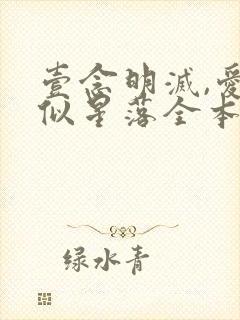 壹念明滅,愛
似星落全本
绿水青